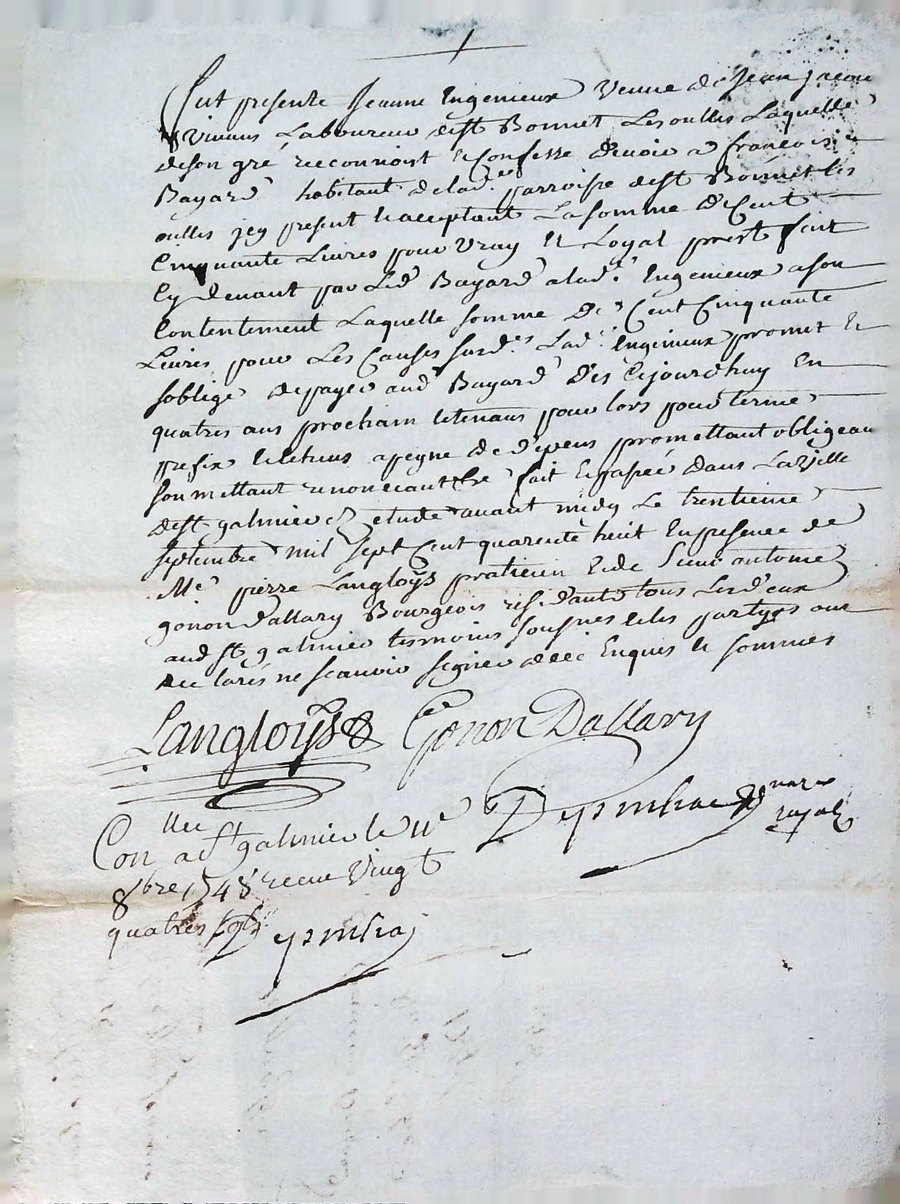 Fut presente Jeanne Ingenieux Veuve de Jean
Vivans Laboureur de St Bonnet Les oulles Laquelle
de son gré reconnoist & Confesse devoir a françois
Bayard habitant de lad.e parroisse de St Bonnet les
oulles jcy present & acceptant La somme de Cent
Cinquante Livres pour Vray Et Loyal prest fait
Cy devant par Led Bayard a lad.e Ingenieux a son
Contentement Laquelle somme de Cent Cinquante
Livres pour Les Causes susd.s Lad.e Ingenieux promet Et
soblige de payer aud Bayard Des Cejourdhuy En
quatres ans prochain Et venans pour lors pour terme
prefix a peyne de depens promettant obligeant
soumettant renonceant fait Et passée Dans La Ville
de St galmier etude avant midy Le trentieme
septembre mil sept Cent quarente huit En presence de
Me pierre Langloÿs praticien Et de Sieur antoine
gonon Dallary Bourgeois residants tous Les deux
aud St galmier tesmoins sousnes Et les partyes ont
declarés ne scavoir signer de ce Enquis & sommés
Langloÿs Gonon Dallary
Conllee a St galmier le 11e
notre royal
8bre 1748 receu Vingt
quatres sols